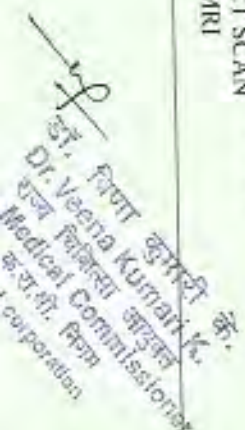 CT SCAN
MRI
डॉ. विणा कुमारी के.
Dr. Veena Kumari K.
राज्य चिकित्सा आयुक्त
Medical Commissioner
क.रा.बी. निगम
corporation